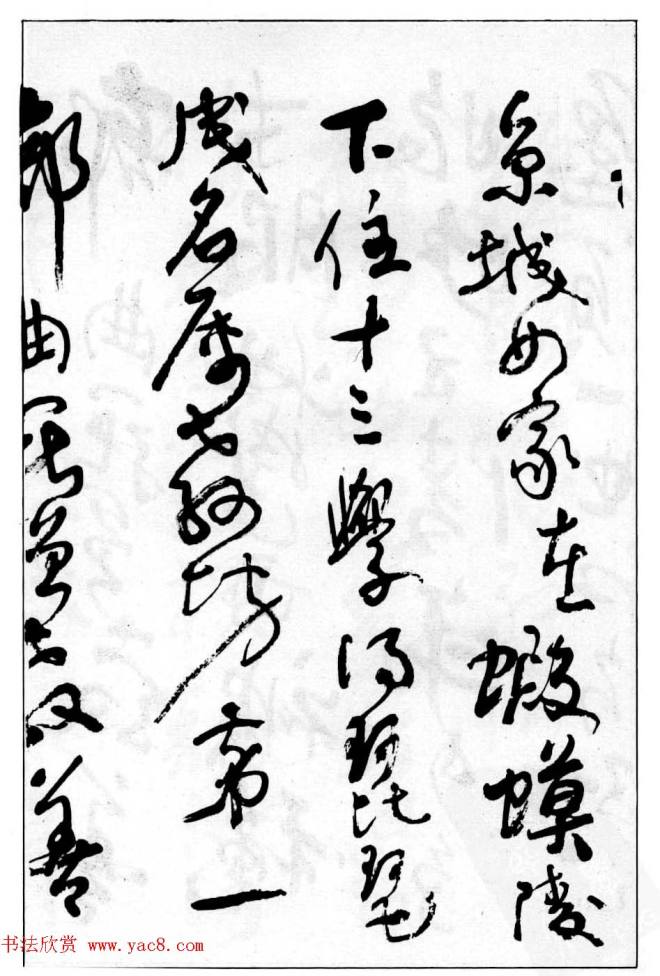 京城女家在蝦蟆陵
下住十三學得琵琶
成名屬教坊第一
部曲罷曾教善
书法欣赏 www.yac8.com